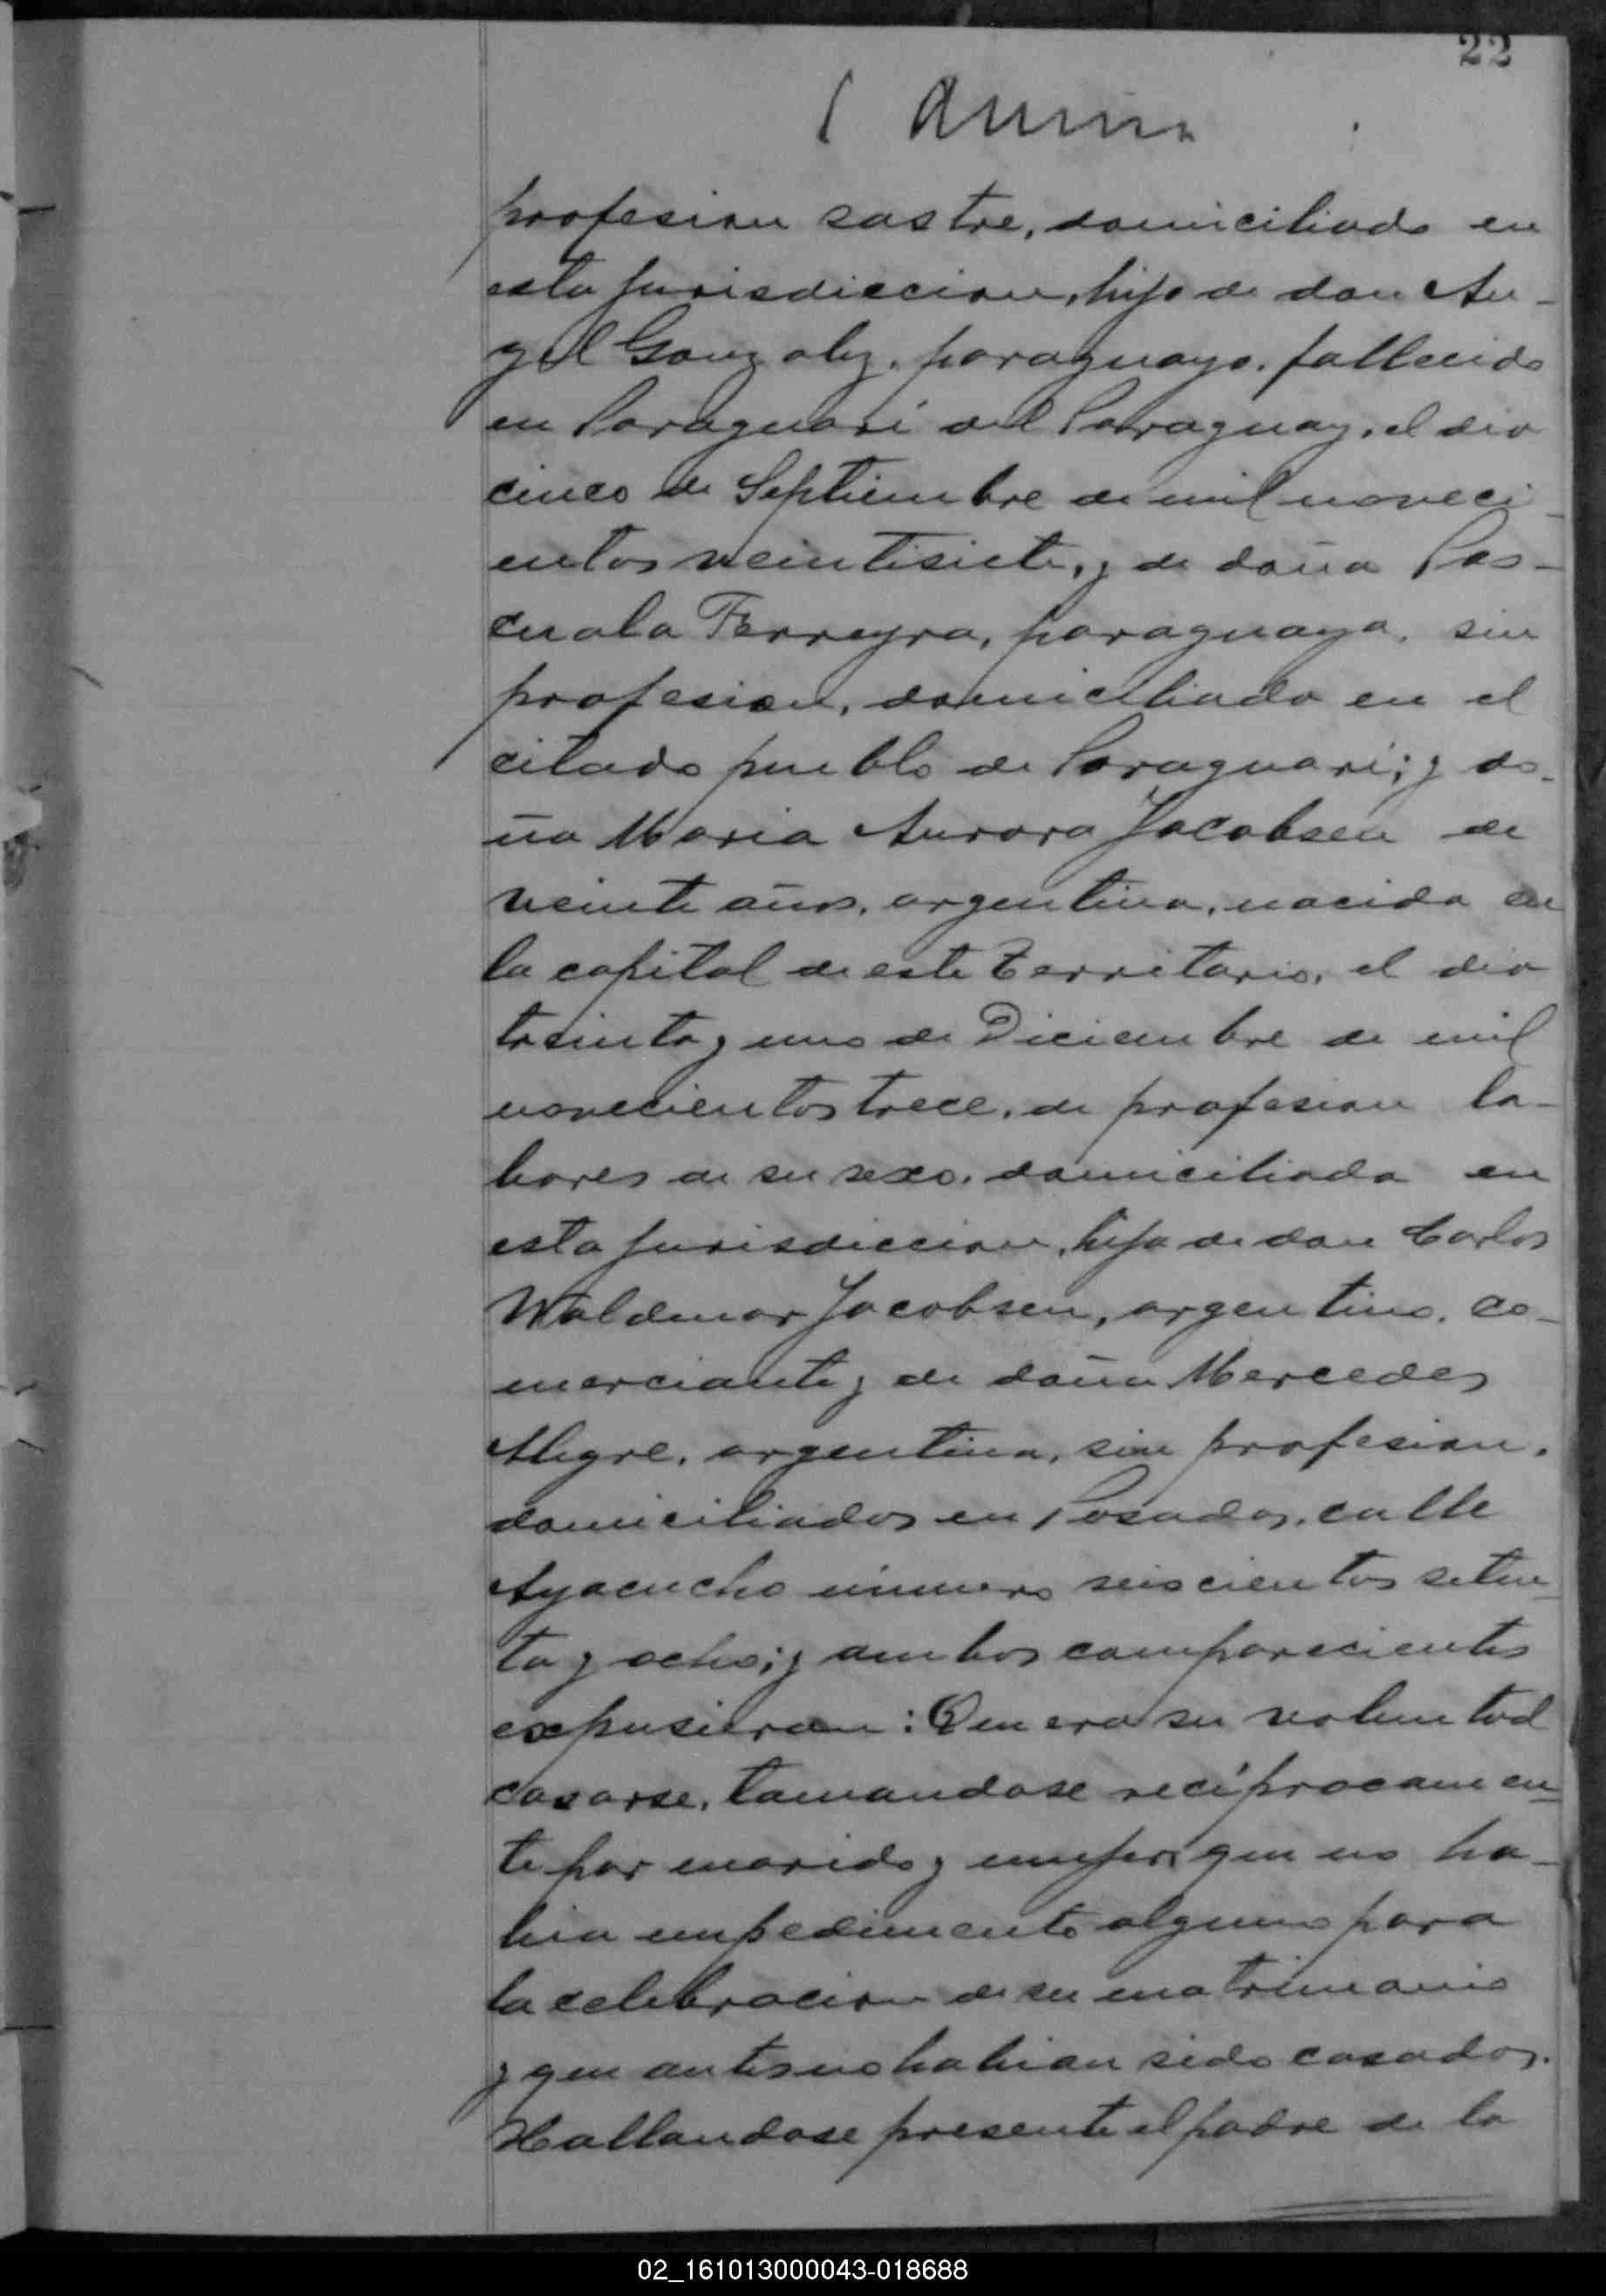 22
profesion sastre, domiciliado en
esta jurisdiccion, hijo de don An-
gel Gonzalez, paraguayo, fallecido
en Paraguarí del Paraguay, el dia
cinco de Septiembre de mil noveci-
entos veintisiete, y de doña Pas-
cuala Ferreyra, paraguaya, sin
profesion, domiciliada en el
citado pueblo de Paraguarí; y do-
ña Maria Aurora Jacobsen de
veinte años, argentina, nacida en
la capital de este Territorio, el dia
treinta y uno de Diciembre de mil
novecientos trece, de profesion la-
bores de su sexo, domiciliada en
esta jurisdiccion, hija de don Carlos
Waldemar Jacobsen, argentino, co-
merciante y de doña Mercedes
Alegre, argentina, sin profesion,
domiciliados en Posadas, calle
Ayacucho número seiscientos seten-
ta y ocho; y ambos comparecientes
expusieron: Que era su voluntad
casarse, tomandose recíprocamen-
te por marido y mujer; que no ha-
bia impedimento alguno para
la celebracion de su matrimonio
y que antes no habian sido casados.
Hallandose presente el padre de la
02_161013000043-018688